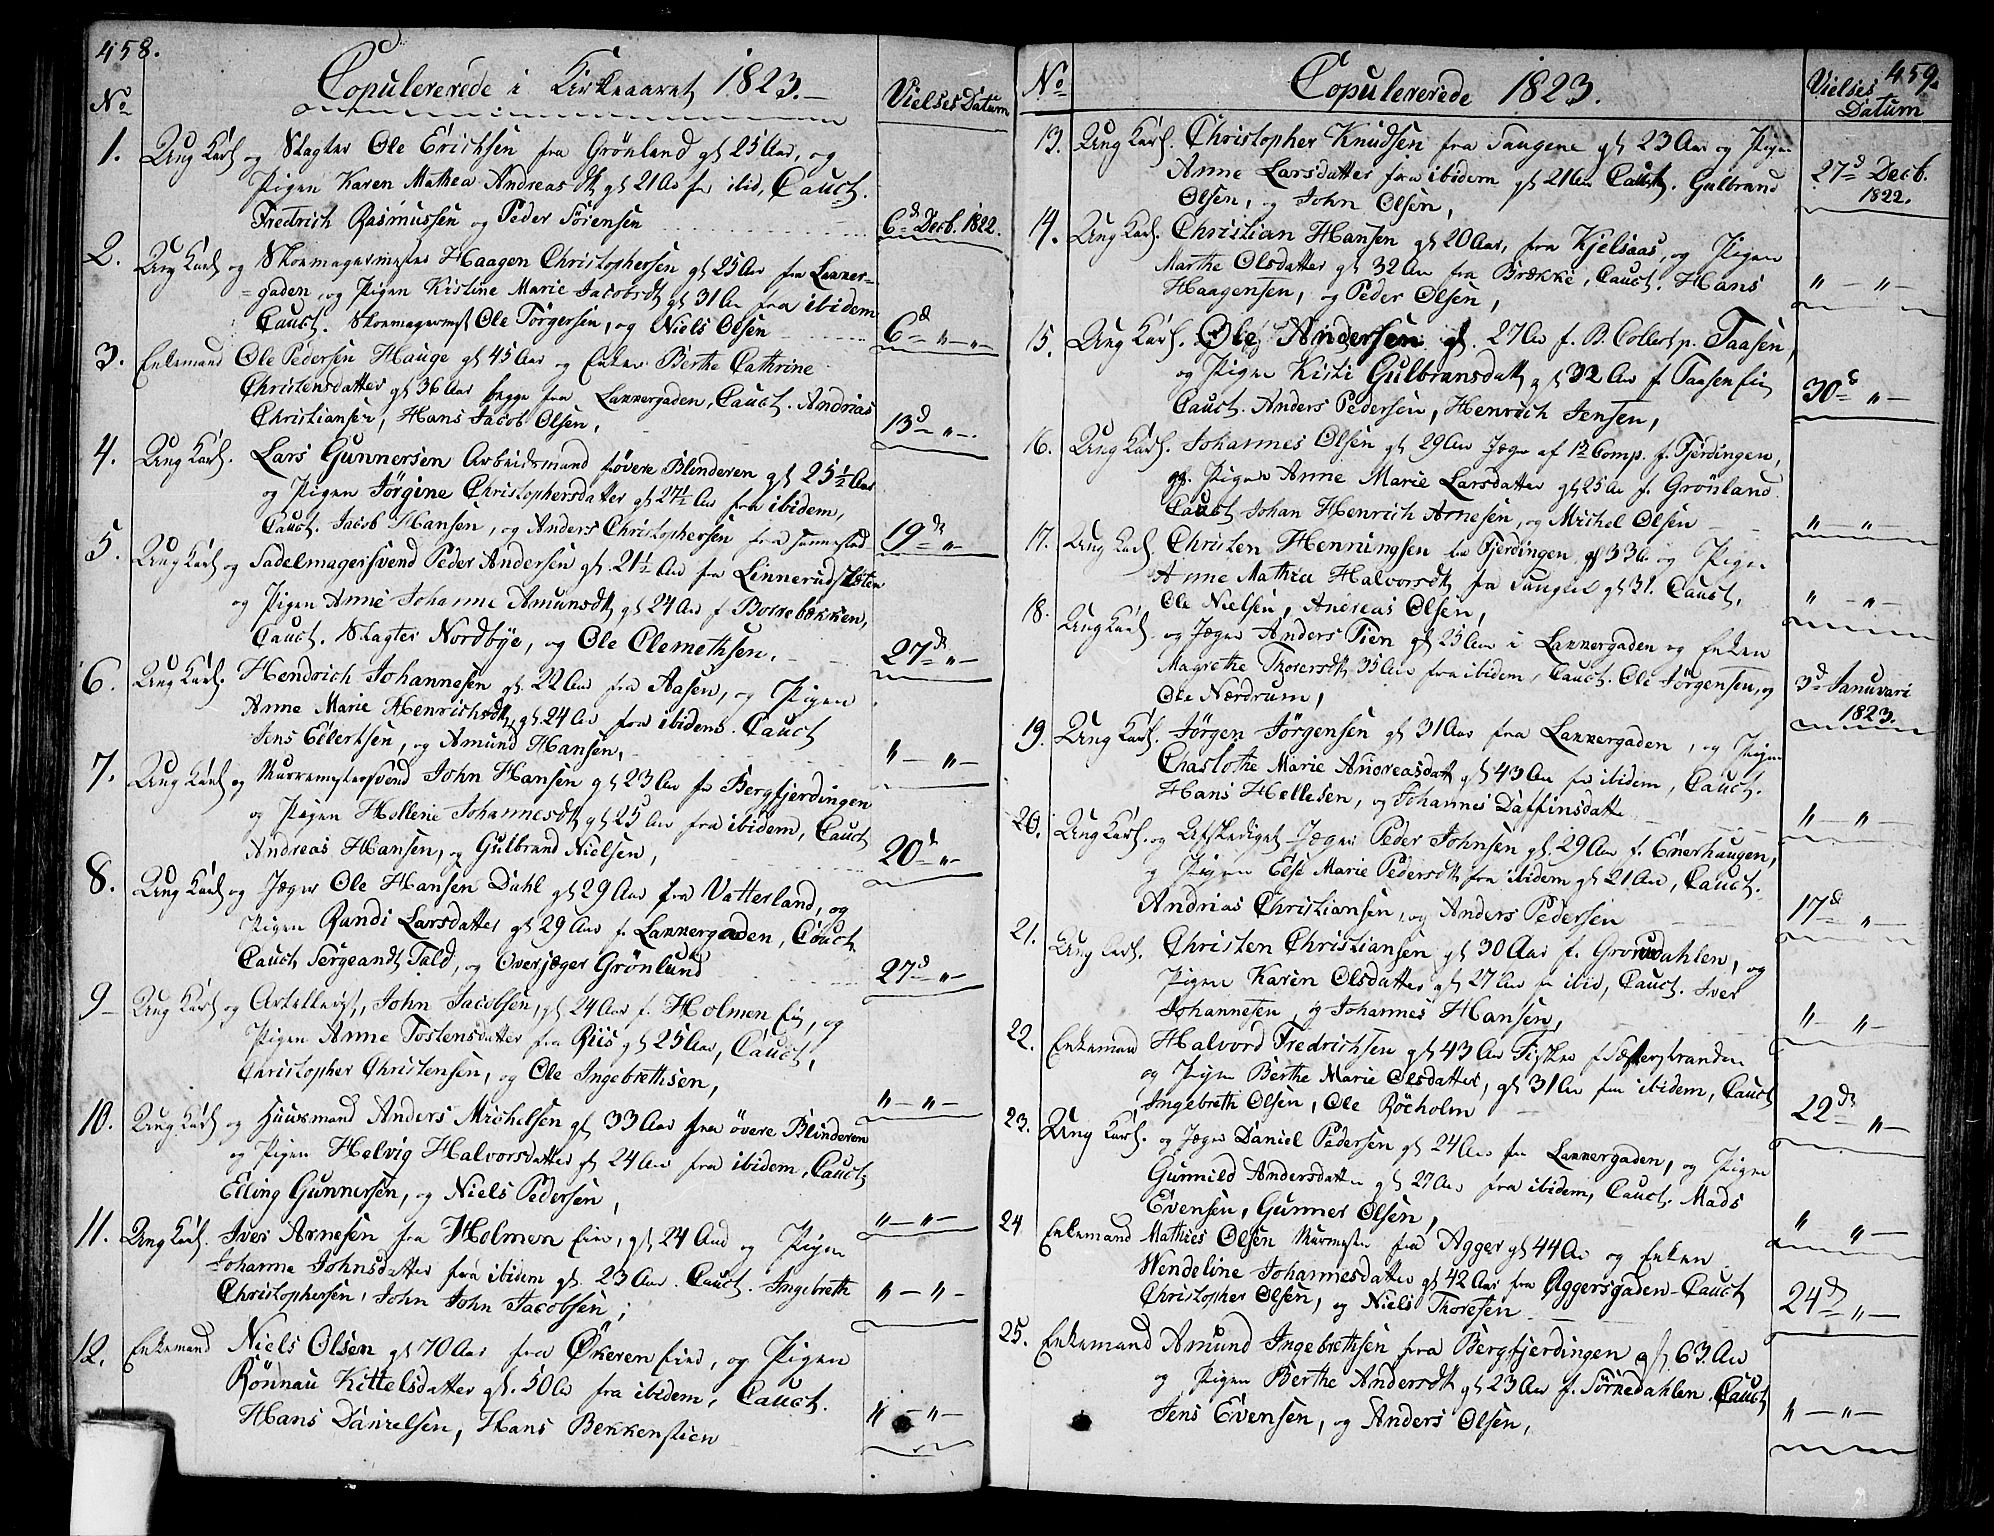 458.
Copulererede i Kirkeaaret 1823.
No
Vielses Datum
1. Ung Karl og Slagter Ole Erichsen fra Grönland gl 25 Aar, og
Pigen Karen Mathea Andreasdt gl 21 Aar fr ibid, Cauct.
Fredrich Rasmussen og Peder Sörensen
6d Decb. 1822.
2. Ung Karl og Skomagermester Haagen Christophersen gl 25 Aar fra Lakker-
gaden, og Pigen Kistine Marie Jacobsdt gl 31 Aar fra ibidem
Cauct. Skomagermst Ole Törgersen, og Niels Olsen
6d " "
3. Enkemand Ole Pedersen Hauge gl 45 Aar og Enken Berthe Cathrine
Christensdatter gl 36 Aar begge fra Lakkergaden, Cauct. Andrias
Christiansen, Hans Jacob Olsen,
13d "
4. Ung Karl. Lars Gunnersen Arbeidsmand Övere Blinderen gl 25½ Aar
og Pigen Jörgine Christophersdatter gl 27½ Aar fra ibidem,
Cauct. Jacob Hansen, og Anders Christophersen fra
19de "
5. Ung Karl og Sadelmagersvend Peder Andersen gl 21½ Aar fra Linnerudslöten
og Pigen Anne Johanne Amunsdt gl 24 Aar f Borrebækken,
Cauct. Slagter Nordbye, og Ole Clemethsen.
27de "
6. Ung Karl. Hendrich Johannesen gl 22 Aar fra Aasen, og Pigen
Anne Marie Henrichsdt, gl 24 Aar fra ibidem. Cauct
Jens Eilertsen, og Amund Hansen,
" "
7. Ung Karl og Murremestersvend John Hansen gl 23 Aar fr Bergfjerdingen
og Pigen Hellene Johannesdt gl 25 Aar fra ibidem, Cauct
Andreas Hansen, og Gulbrand Nielsen,
20d "
8. Ung Karl og Jæger Ole Hansen Dahl gl 29 Aar fra Vatterland, og
Pigen Randi Larsdatter gl 29 Aar f. Lakkergaden, Cauct
Cauct Sergeandt Fald, og Overjæger Grönlund
27d "
9 Ung Karl og Artellerist, John Jacobsen, gl 24 Aar f. Holmen Eie, og
Pigen Anne Tostensdatter fra Riis gl 25 Aar, Cauct,
Christopher Christensen, og Ole Ingebrethsen,
" "
10. Ung Karl og Huusmand Anders Michelsen gl 33 Aar fra övere Blinderen
og Pigen Helvig Halvorsdatter gl 24 Aar fra ibidem, Cauct
Elling Gunnersen, og Niels Pedersen,
" "
11. Ung Karl. Iver Arnesen fra Holmen Eie, gl 24 Aar og Pigen
Johanne Johnsdatter fra ibidem gl. 23 Aar. Cauct. Ingebreth
Christophersen, John John Jacobsen;
" "
12. Enkemand Niels Olsen gl 70 Aar fra Økeren Eie, og Pigen
Rönnau Kittelsdatter gl. 50 Aar fra ibidem, Cauct.
Hans Danielsen, Hans Bekkenstien
" "
459.
No
Copulererede 1823.
Vielses
Datum
13. Ung Karl. Christopher Knudsen fra Taugene gl 23 Aar og Pigen
Anne Larsdatter fra ibidem gl 21 Aar Cauct. Gulbrand
Olsen, og John Olsen,
27d Decb.
1822.
14. Ung Karl. Christian Hansen gl 20 Aar, fra Kjelsaas, og Pigen
Marthe Olsdatter gl 32 Aar fra Brække, Cauct. Hans
Haagensen, og Peder Olsen,
" "
15. Ung Karl. Ole Andersen gl. 27 Aar f. B. Collert p. Taasen,
og Pigen Kisti Gulbransdatt gl 32 Aar f. Taasen Eie
Cauct. Anders Pedersen, Henrich Jensen,
30d "
16. Ung Karl. Johannes Olsen gl 29 Aar Jæger af 12 Comp. f. Fjerdingen,
og Pigen Anne Marie Larsdatter gl 25 Aar f. Grönland
Cauct Johan Henrich Arnesen, og Michel Olsen
" "
17. Ung Karl. Christen Henningsen fra Fjerdingen gl 33 Aar og Pigen
Anne Mathea Halvorsdt fra Taugen gl 31. Cauct,
Ole Nielsen, Andreas Olsen,
" "
18. Ung Karl. og Jæger Anders Tien gl 25 Aar i Lakkergaden og Enken
Magrethe Thorersdt 35 Aar fra ibidem, Cauct. Ole Jörgensen, og
Ole Nærdrum,
3d Januvari
1823.
19. Ung Karl. Jörgen Jörgensen gl 31 Aar fra Lakkergaden, og Pigen
Charlothe Marie Andreasdatt gl 43 Aar fr ibidem, Cauct.
Hans Hellesen, og Johannes Daffinsdatte
" "
20. Ung Karl. og Afskediget Jæger Peder Johnsen gl. 29 Aar f. Enerhaugen,
og Pigen Else Marie Pedersdt fra ibidem gl 21 Aar, Cauct.
Andrias Christiansen, og Anders Pedersen
17d "
21. Ung Karl. Christen Christiansen gl 30 Aar f. Grorudahlen, og
Pigen Karen Olsdatter gl 27 Aar fr ibid, Cauct. Iver
Johannesen, og Johannes Hansen,
" "
22. Enkemand Halvord Fredrichsen gl 43 Aar Fisker f
og Pigen Berthe Marie Olsdatter, gl 31 Aar fra ibidem, Cauct
Ingebreth Olsen, Ole Röcholm
22de "
23. Ung Karl. og Jæger Daniel Pedersen gl 24 Aar fra Lakkergaden, og Pigen
Gunnild Andersdatter gl 27 Aar fra ibidem, Cauct. Mads
Evensen, Gunner Olsen,
" "
24 Enkemand Mathies Olsen Murmester fra Agger gl 44 Aar og Enken
Wendeline Johannesdatter gl 42 Aar fra Aggersgaden Cauct
Christopher Olsen, og Niels Thoresen
24de "
25. Enkemand Amund Ingebrethsen fra Bergfjerdingen gl 63. Aar
og Pigen Berthe Andersdt gl 23 Aar f. Sörkedahlen. Cauct
Jens Evensen, og Anders Olsen,
" "